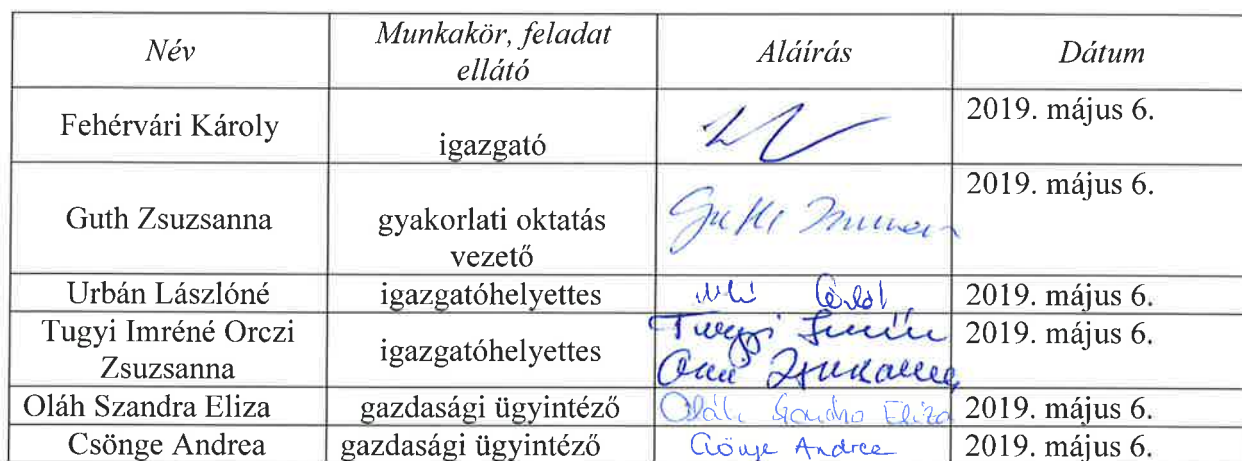 Név Munkakör, feladat ellátó Aláírás Dátum
Fehérvári Károly igazgató 2019. május 6.
Guth Zsuzsanna gyakorlati oktatás vezető Guth 2019. május 6.
Urbán Lászlóné igazgatóhelyettes 2019. május 6.
Tugyi Imréné Orczi Zsuzsanna igazgatóhelyettes Tugyi Imréné Orczi Zsuzsanna 2019. május 6.
Oláh Szandra Eliza gazdasági ügyintéző Oláh Szandra Eliza 2019. május 6.
Csönge Andrea gazdasági ügyintéző Csönge Andrea 2019. május 6.